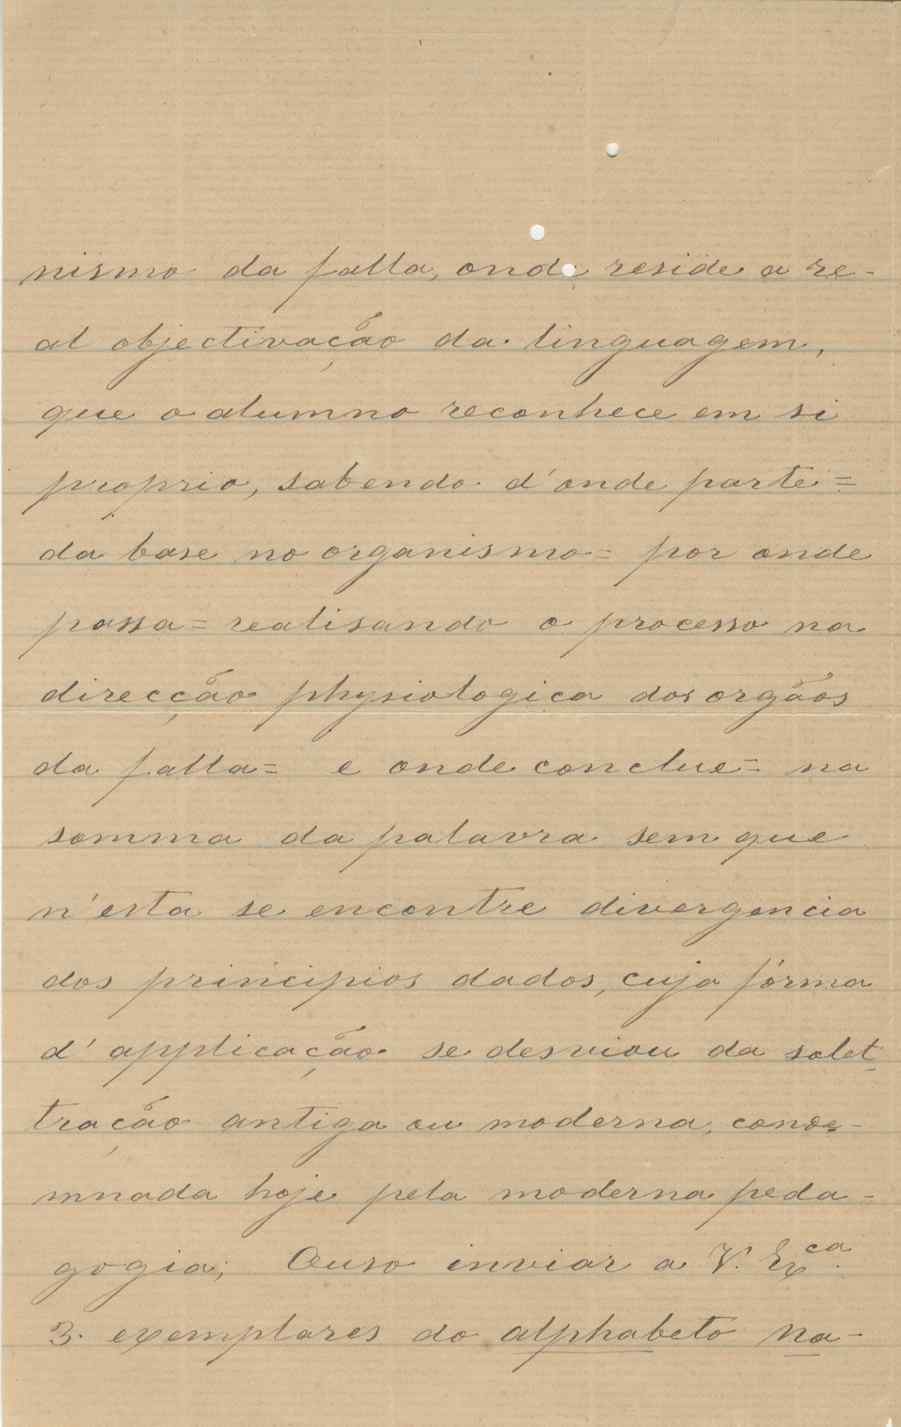 nismo da falla, onde reside a re-
al objectivação da linguagem,
que o alumno reconhece em si
proprio, sabendo d'onde parte=
da base no organismo= por onde
passa= realisando o processo na
direcção physiologica dos orgãos
da falla= e onde conclue= na
somma da palavra sem que
n'esta se encontre divergencia
dos principios dados, cuja fórma
d'applicação se desviou da solet-
tração antiga ou moderna, conde-
mnada hoje pela moderna peda-
gogia; Ouso inviar a V. Exca.
3. exemplares do alphabeto na-